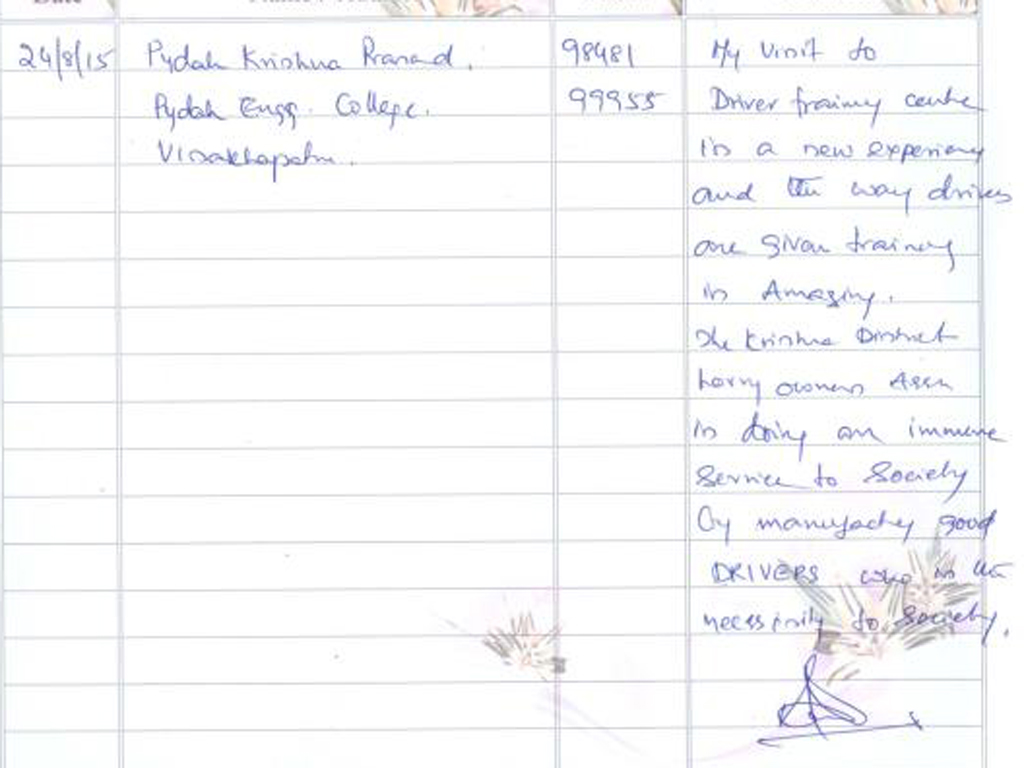 24/8/15
Pydah Krishna Prasad.
Pydah Engg. College.
Visakhapatnm.
98481
99955
My visit to
Driver training centre
is a new experience
and the way drivers
are given training
is Amazing.
The Krishna District
Lorry owners Assn
is doing an immense
Service to Society
by manufacturing good
DRIVERS who is the
necessity to Society.